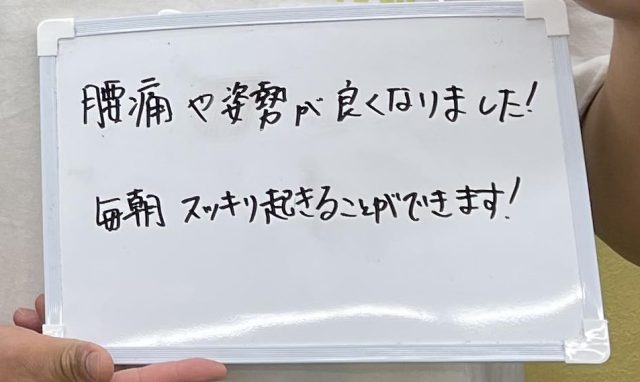 腰痛や姿勢が良くなりました!
毎朝スッキリ起きることができます!